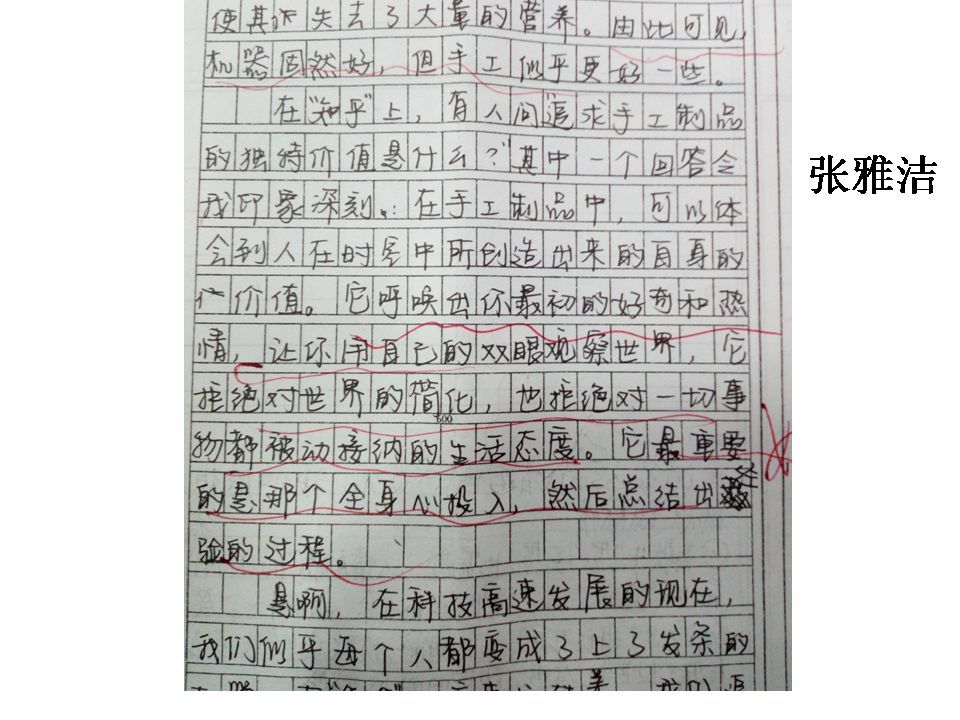 使其 失去了大量的营养。由此可见,
机器固然好,但手工似乎更好一些。
在"知乎"上,有人问"追求手工制品
的独特价值是什么?"其中一个回答令
我印象深刻:在手工制品中,可以体
会到人在时 中所创造出来的自身的
价值。它呼唤出你最初的好奇和热
情,让你用自己的双眼观察世界,它
拒绝对世界的简化,也拒绝对一切事
600
物都被动接纳的生活态度。它最重要
的是那个全身心投入,然后总结出经
验的过程。
是啊,在科技高速发展的现在,
我们似乎每个人都变成了上了发条的
张雅洁